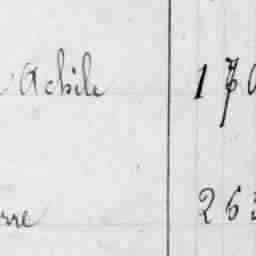 Achile 170
rre 263